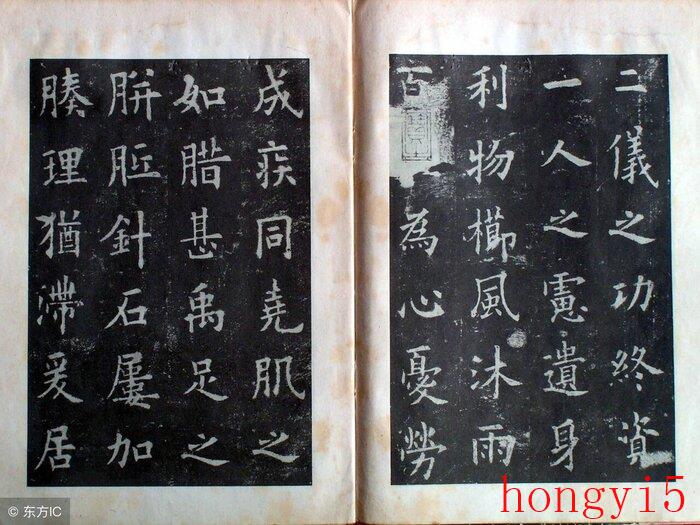 二儀之功終資
一人之慮遺身
利物櫛風沐雨
百為心憂勞
成疾同堯肌之
如腊甚禹足之
胼胝針石屢加
腠理猶滯爰居
© 东方IC
hongyi5